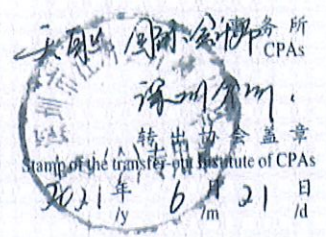 天职国际会计师事务所
CPAs
深圳分所
转出协会盖章
Stamp of the transfer-out Institute of CPAs
2021年 6月 21日
/y /m /d